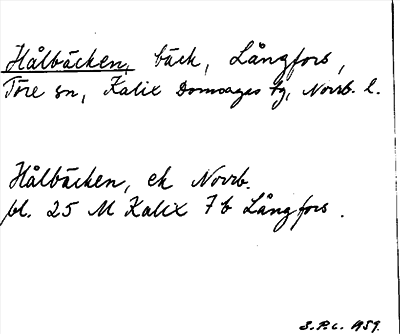 Hålbäcken, bäck, Långfors,
Töre sn, Kalix Domsagas tg, Norrb. l.
Hålbäcken, ek Norrb.
bl. 25 M Kalix 7 b Långfors.
S.P.L. 1959.